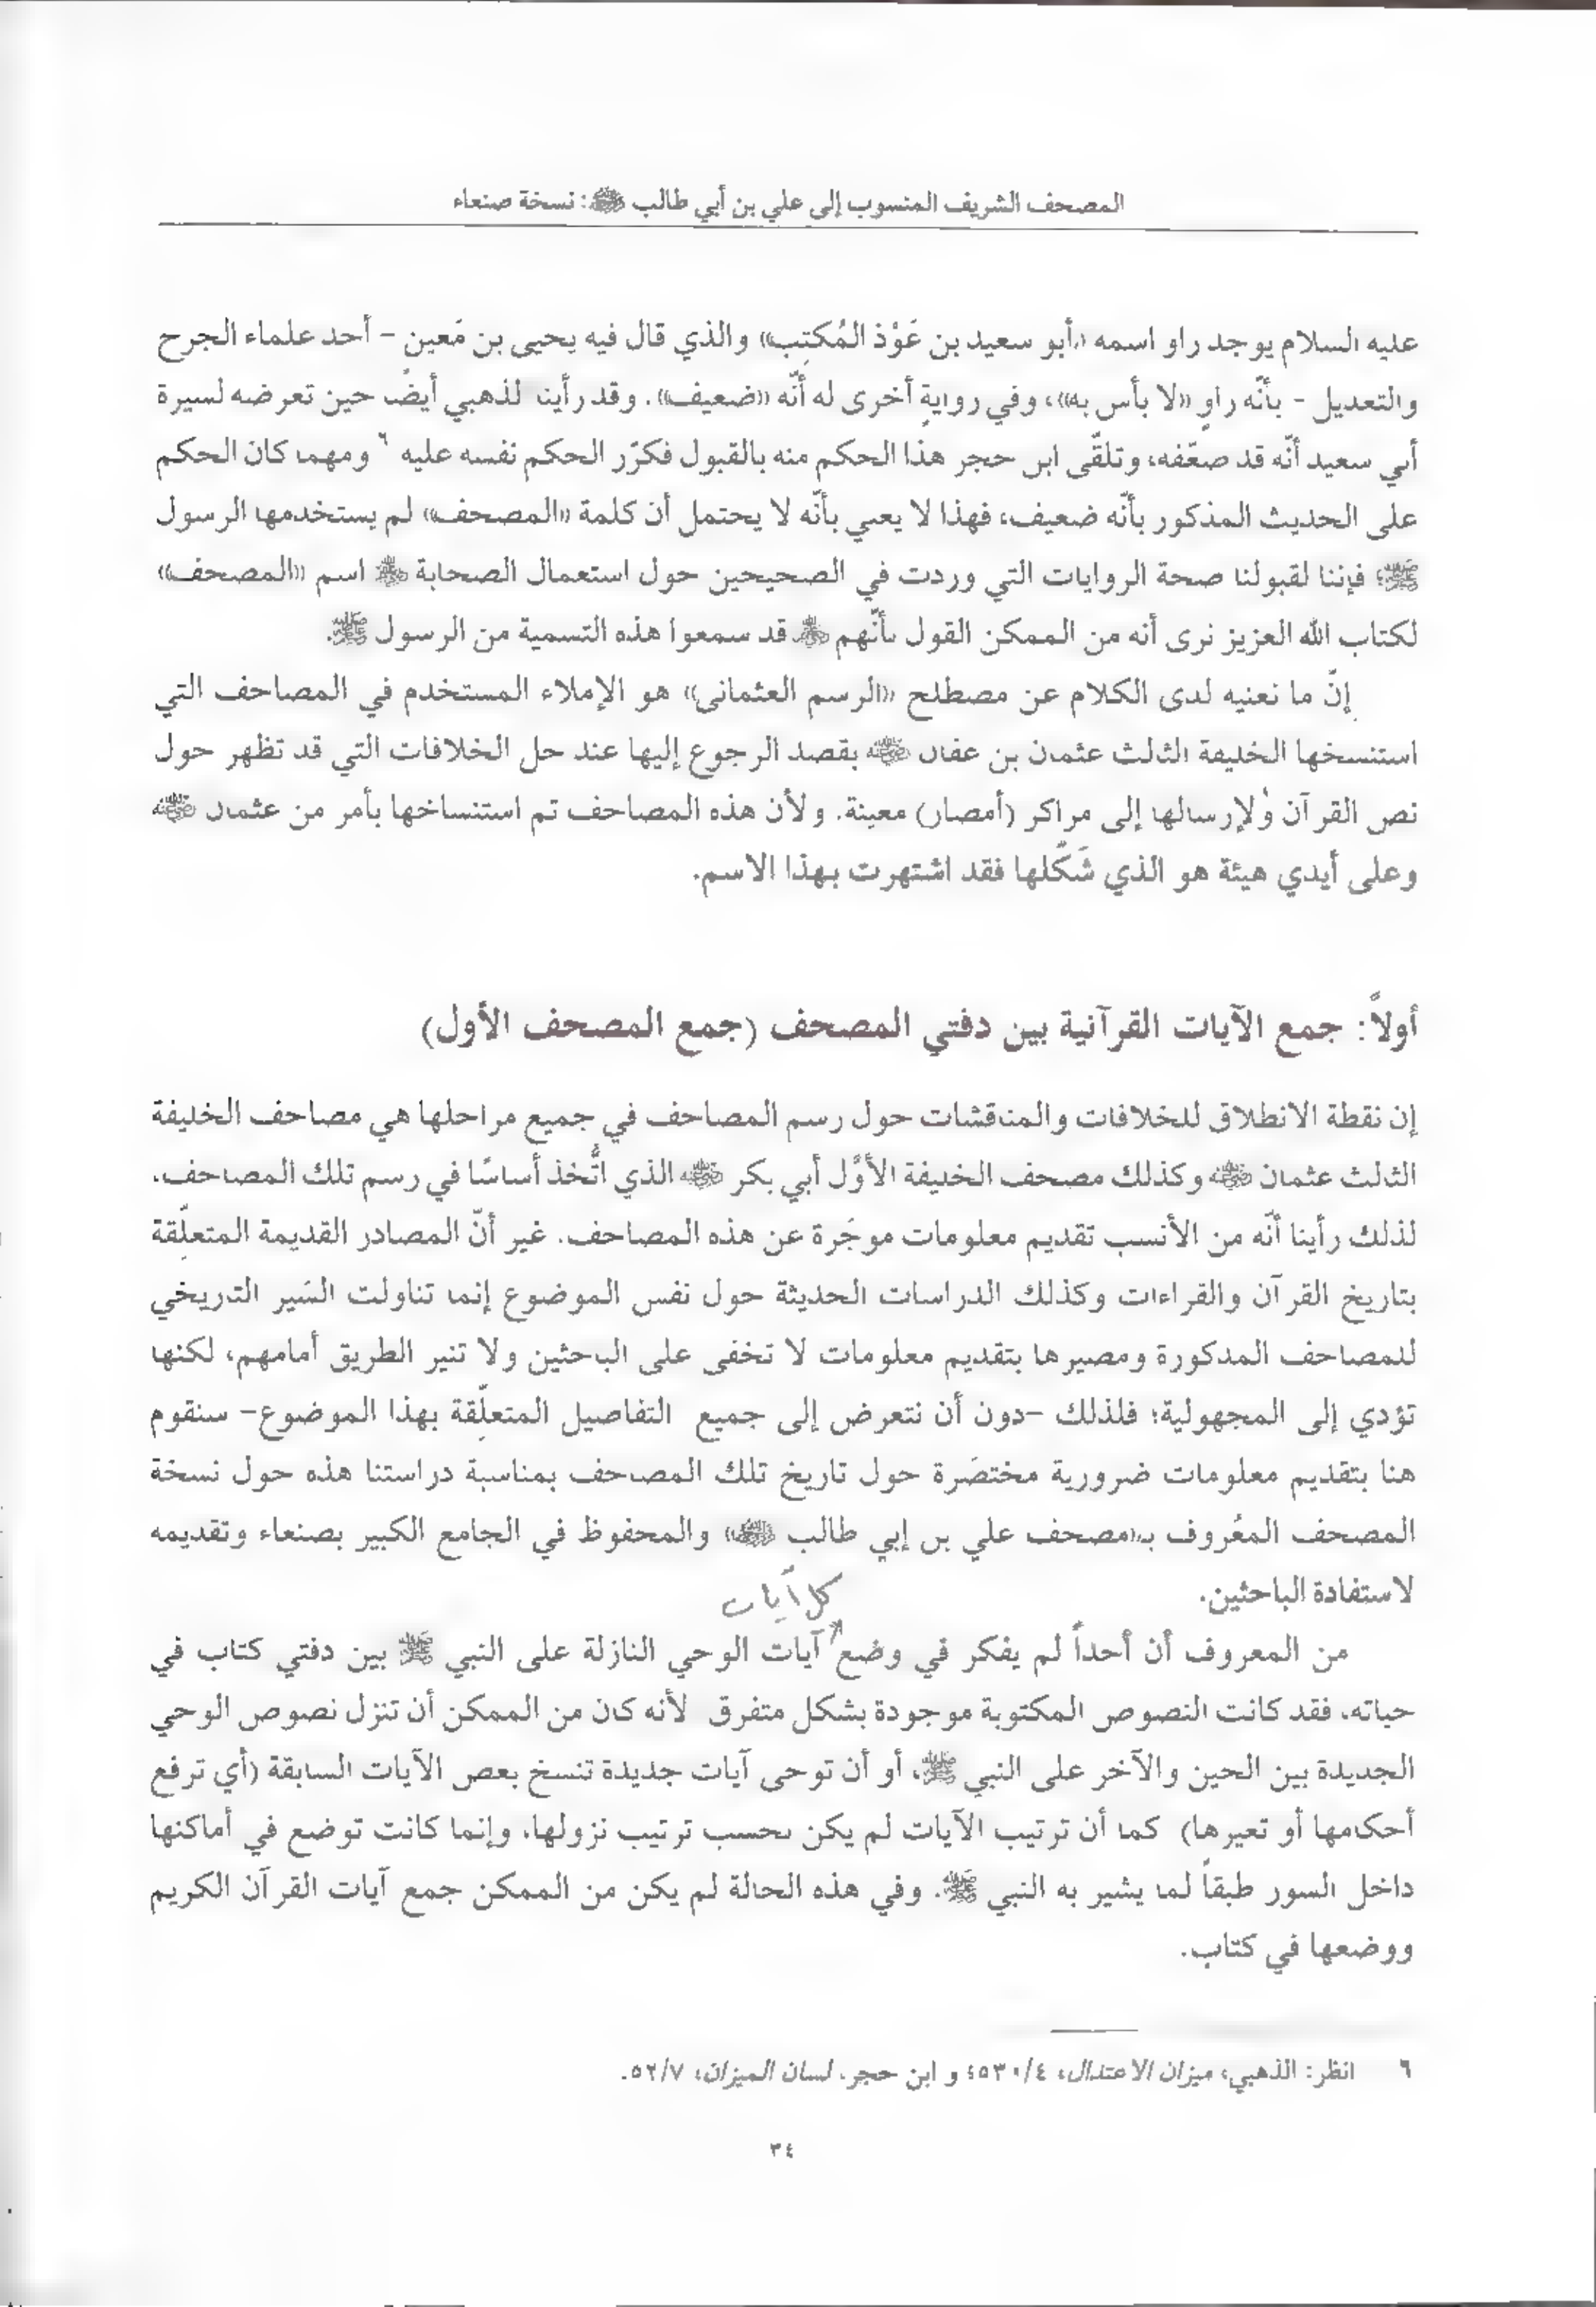 المصحف الشريف المنسوب إلى علي بن أبي طالب ﷺ: نسخة صنعاء
عليه السلام يوجد راو اسمه «أبو سعيد بن عَوْذ المُكتِب» والذي قال فيه يحيى بن مَعين - أحد علماء الجرح
والتعديل - بأنّه راوٍ «لا بأس به»، وفي روايةٍ أخرى له أنّه «ضعيف». وقد رأينا الذهبي أيضًا حين تعرضه لسيرة
أبي سعيد أنّه قد ضعّفه، وتلقّى ابن حجر هذا الحكم منه بالقبول فكرّر الحكم نفسه عليه ٦ ومهما كان الحكم
على الحديث المذكور بأنّه ضعيف، فهذا لا يعني بأنّه لا يحتمل أن كلمة «المصحف» لم يستخدمها الرسول
ﷺ؛ فإننا لقبولنا صحة الروايات التي وردت في الصحيحين حول استعمال الصحابة ﷺ اسم «المصحف»
لكتاب الله العزيز نرى أنه من الممكن القول بأنّهم ﷺ قد سمعوا هذه التسمية من الرسول ﷺ.
إنّ ما نعنيه لدى الكلام عن مصطلح «الرسم العثماني» هو الإملاء المستخدم في المصاحف التي
استنسخها الخليفة الثالث عثمان بن عفان ﷺ بقصد الرجوع إليها عند حل الخلافات التي قد تظهر حول
نص القرآن ولإرسالها إلى مراكز (أمصار) معينة. ولأن هذه المصاحف تم استنساخها بأمر من عثمان ﷺ
وعلى أيدي هيئة هو الذي شَكّلها فقد اشتهرت بهذا الاسم.
أولاً: جمع الآيات القرآنية بين دفتي المصحف (جمع المصحف الأول)
إن نقطة الانطلاق للخلافات والمناقشات حول رسم المصاحف في جميع مراحلها هي مصاحف الخليفة
الثالث عثمان ﷺ وكذلك مصحف الخليفة الأوّل أبي بكر ﷺ الذي اتُّخذ أساسًا في رسم تلك المصاحف.
لذلك رأينا أنّه من الأنسب تقديم معلومات موجَزة عن هذه المصاحف. غير أنّ المصادر القديمة المتعلّقة
بتاريخ القرآن والقراءات وكذلك الدراسات الحديثة حول نفس الموضوع إنما تناولت السَير التاريخي
للمصاحف المذكورة ومصيرها بتقديم معلومات لا تخفى على الباحثين ولا تنير الطريق أمامهم، لكنها
تؤدي إلى المجهولية؛ فلذلك -دون أن نتعرض إلى جميع التفاصيل المتعلّقة بهذا الموضوع- سنقوم
هنا بتقديم معلومات ضرورية مختصَرة حول تاريخ تلك المصاحف بمناسبة دراستنا هذه حول نسخة
المصحف المعْروف بـ«مصحف علي بن إبي طالب ﷺ» والمحفوظ في الجامع الكبير بصنعاء وتقديمه
لاستفادة الباحثين.
كل آيات
من المعروف أن أحداً لم يفكر في وضع آيات الوحي النازلة على النبي ﷺ بين دفتي كتاب في
حياته. فقد كانت النصوص المكتوبة موجودة بشكل متفرق لأنه كان من الممكن أن تنزل نصوص الوحي
الجديدة بين الحين والآخر على النبي ﷺ، أو أن توحى آيات جديدة تنسخ بعض الآيات السابقة (أي ترفع
أحكامها أو تغيرها) كما أن ترتيب الآيات لم يكن بحسب ترتيب نزولها، وإنما كانت توضع في أماكنها
داخل السور طبقاً لما يشير به النبي ﷺ. وفي هذه الحالة لم يكن من الممكن جمع آيات القرآن الكريم
ووضعها في كتاب.
٦ انظر: الذهبي، ميزان الاعتدال، ٥٣٠/٤؛ و ابن حجر، لسان الميزان، ٥٢/٧.
٣٤